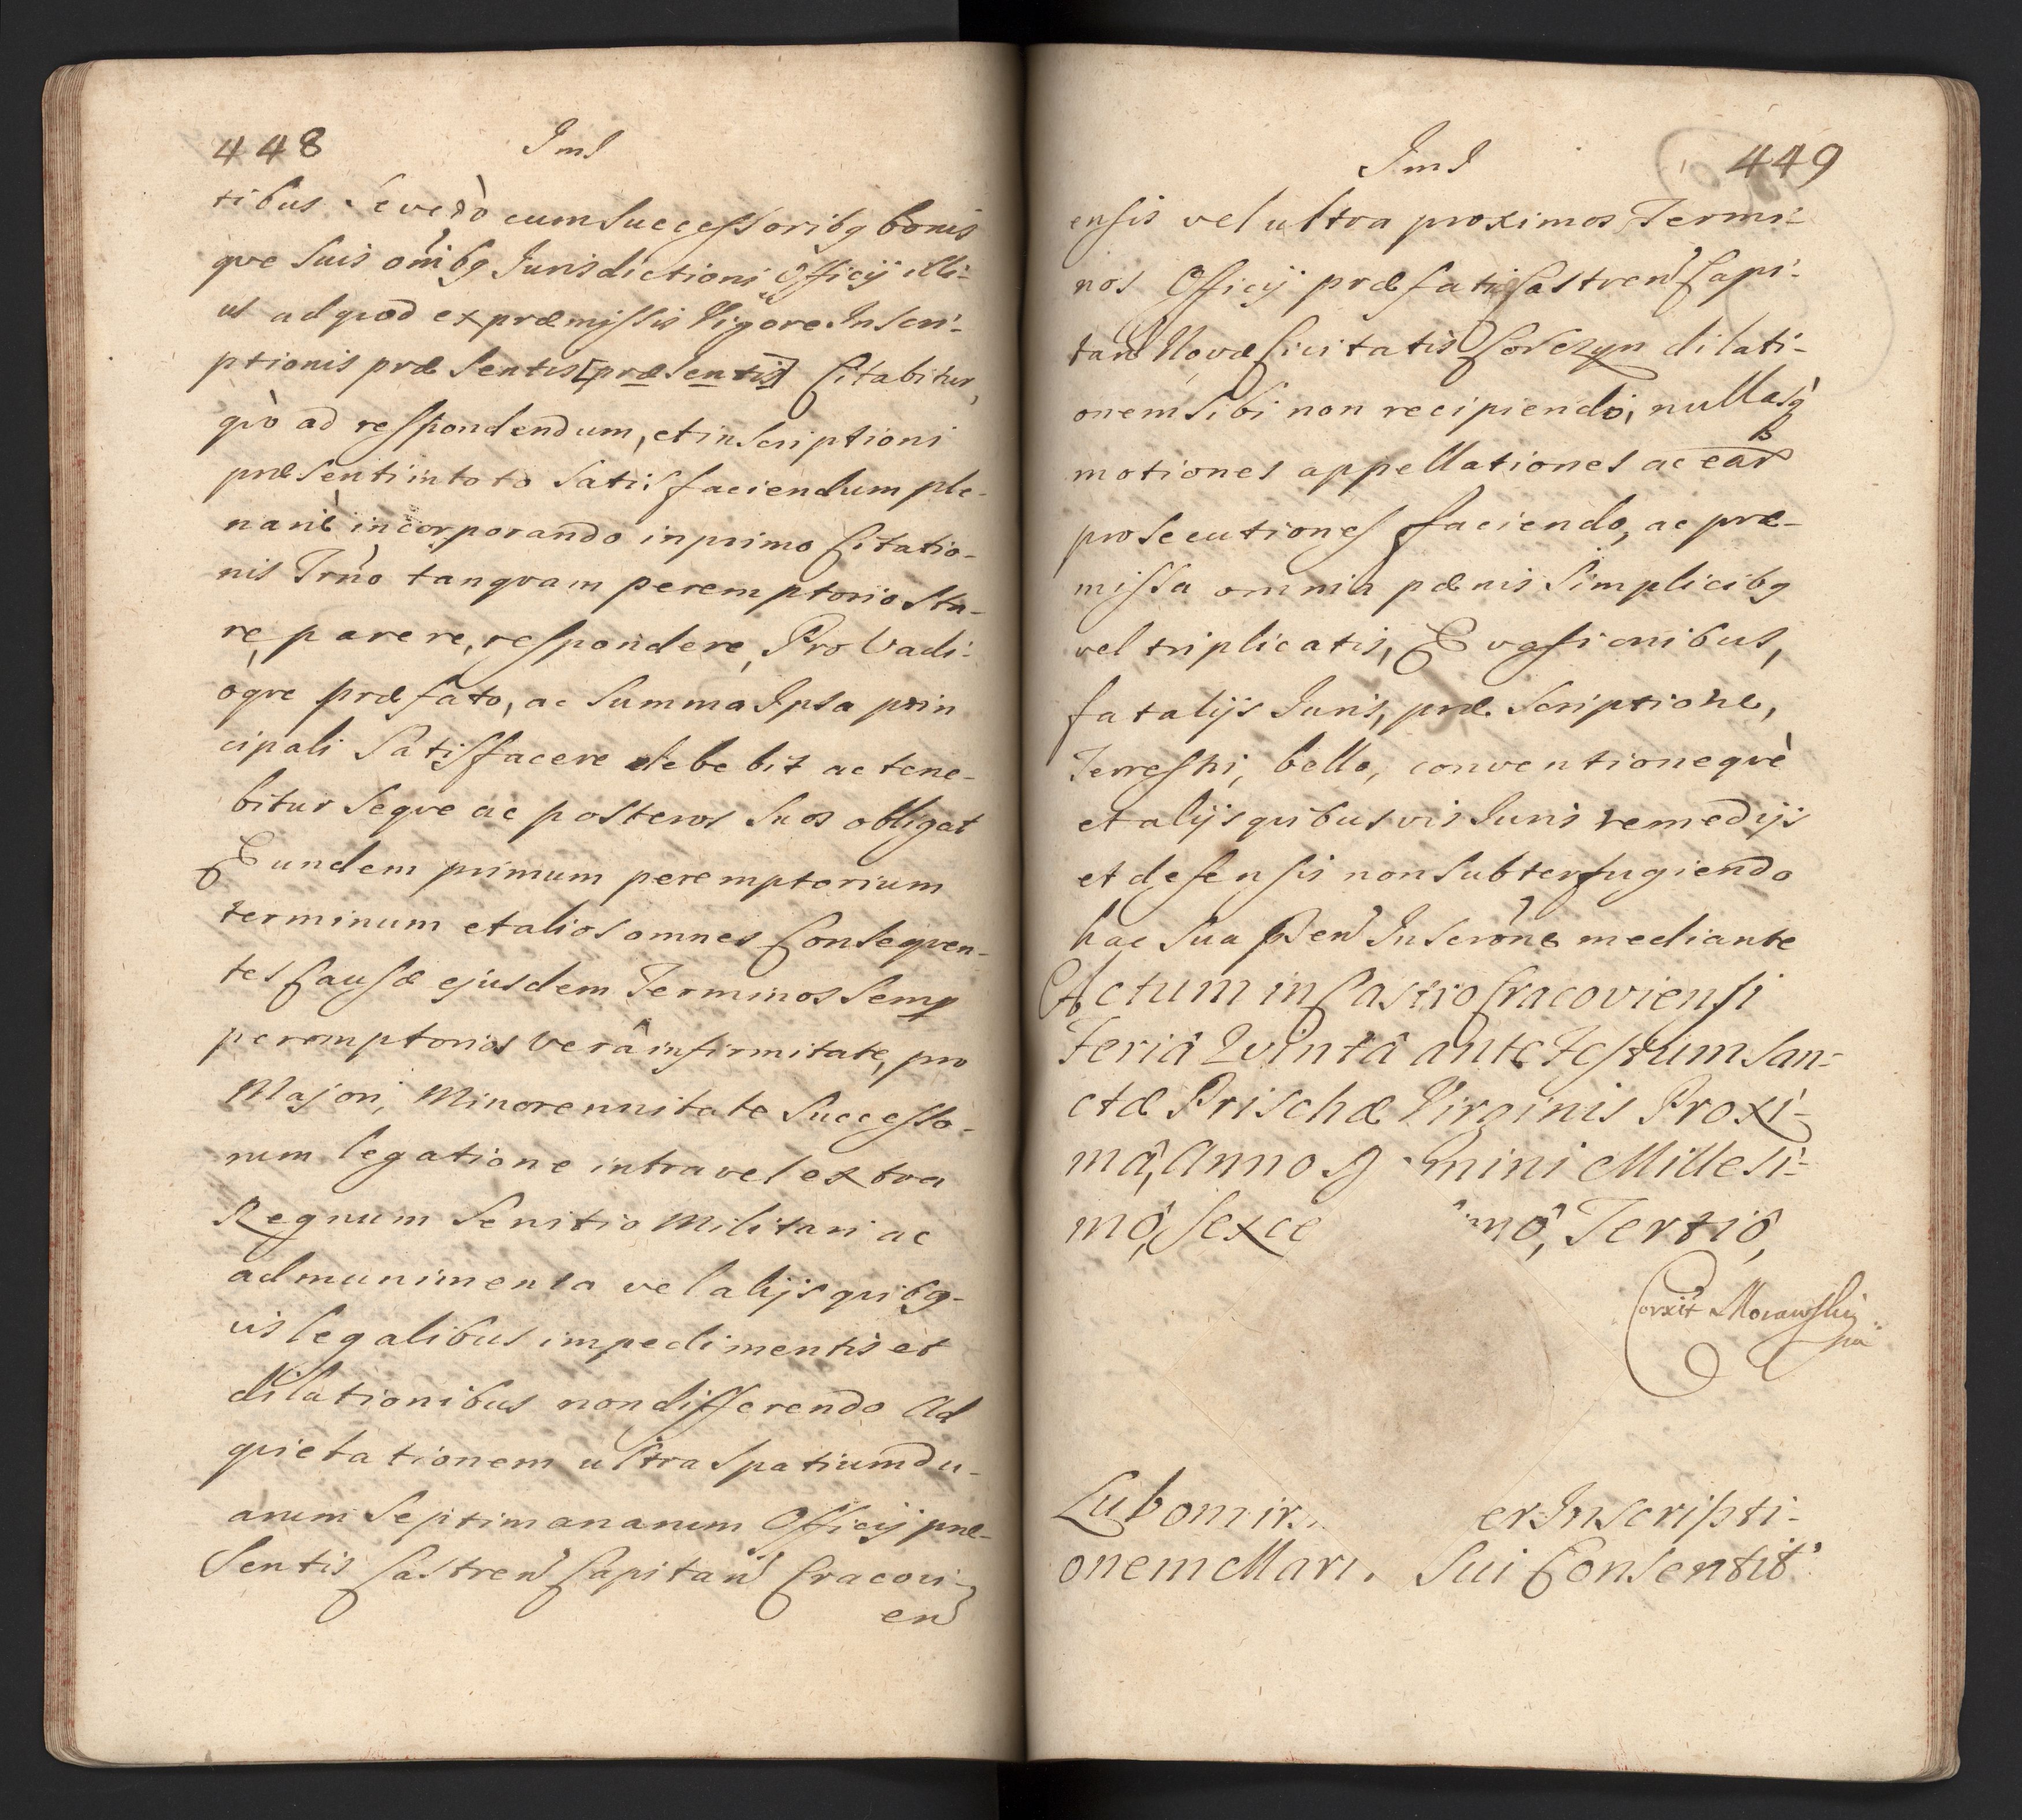 448 Jmł
tibus. Seve dò cum Successoribq bonis
qve Suis om̃ibq Jurisdictioni Officij illi-
us ad qvod ex præmissis Vigore Inscri-
ptionis præsentis [præsentis] Citabitur,
qvò ad respondendum, et inscriptioni
præsenti in toto Satis faciendum ple-
nariè incorporando in primo Citatio-
nis Trño tanqvam peremptorio Sta-
re, parere, respondere, Pro Vadi-
oqve præfato, ac Summa Ipsa prin
cipali Satisfacere debebit ac tene-
bitur Seqve ac posteros Suos obligat
Eundem primum peremptorium
terminum et alios omnes Conseqven-
tes Causæ ejusdem Terminos Semp
peremptorios verâ infirmitate, pro
Majori, Minorennitate Successo-
rum legatione intra vel extra
Regnum Servitio Militari ac
ad munimenta vel alijs qvibq-
vis legalibus impedimentis et
dilationibus non differendo Ad
qvietationem ultra Spatium du-
arum Septimanarum Officij præ-
Sentis Castren Capitan Cracovi-
en
Jmł 449
ensis vel ultra proximos Termi-
nos Officij præfati Castren Capi-
tan Novæ Civitatis Corczyn dilati-
onem Sibi non recipiendo, nullasq̀
motiones appellationes ac ear
prosecutiones faciendo, ac præ-
missa omnia pænis Simplicibq
vel triplicatis, Evasionibus,
fatalijs Juris, præscriptione,
Terrestri, bello, conventioneqvè
et alijs qvibusvis Juris remedijs
et defensis non Subterfugiendo
hac Sua pn̄ Inscrõne mediante
Actum in Castro Cracoviensi
Feriâ Qvintâ ante Festum San-
ctæ Prischæ Virginis Proxi-
mâ, Anno Domini Millesi-
mô, Sexce mô, Tertiô,
Corxit Morawski
pa
Lubomir er Inscripti-
onem Mari Sui Consentit